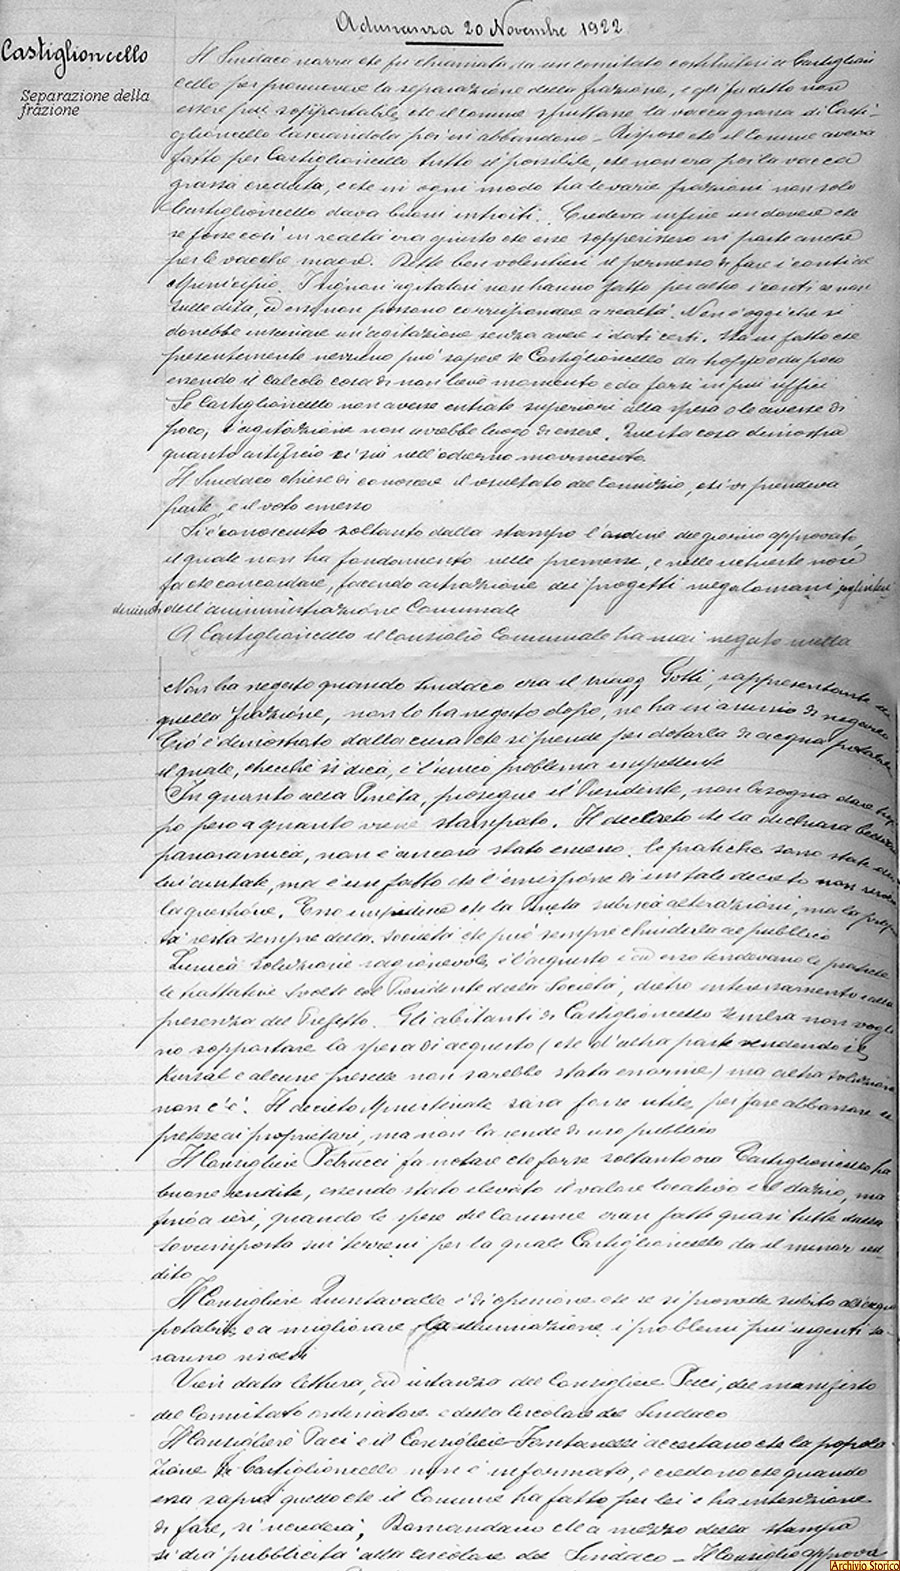 Adunanza 20 Novembre 1922
Castiglioncello
Separazione della
frazione
Il Sindaco narra che fu chiamato da un comitato costituitosi a Castiglion
cello per promuovere la separazione della frazione, e gli fu detto non
essere più sopportabile che il Comune sfruttasse la vacca grassa di Casti-
glioncello lasciandola poi in abbandono - Rispose che il Comune aveva
fatto per Castiglioncello tutto il possibile, che non era poi la vacca
grassa creduta, e che in ogni modo fra le varie frazioni non solo
Castiglioncello dava buoni introiti. Credeva infine un dovere che
se fosse così in realtà era giusto che esse sopperissero in parte anche
per le vacche magre. Dette ben volentieri il permesso di fare i conti al
Municipio. I signori agitatori non hanno fatto peraltro i conti se non
sulle dita, ed essi non possono corrispondere a realtà. Non è oggi che si
dovrebbe iniziare un'agitazione senza avere i dati certi. Sta in fatto che
presentemente nessuno può sapere se Castiglioncello da troppo o da poco
essendo il calcolo cosa di non lieve momento e da farsi in più uffici
Se Castiglioncello non avesse entrate superiori alla spesa o le avesse di
poco, l'agitazione non avrebbe luogo di essere. Questa cosa dimostra
quanto artificio ci sia nell'odierno movimento
Il Sindaco chiese di conoscere il resultato del Comizio, chi vi prendeva
parte, e il voto emesso
Si è conosciuto soltanto dalla stampa l'ordine del giorno approvato,
il quale non ha fondamento nelle premesse, e nelle richieste non è
fa che concordare, facendo astrazione dei progetti megalomani, cogli inten
dimenti dell'amministrazione Comunale
A Castiglioncello il Consiglio Comunale ha mai negato nulla
Non ha negato quando Sindaco era il magg Gotti, rappresentante di
quella frazione, non lo ha negato dopo, ne ha in animo di negarlo
Ciò è dimostrato dalla cura che si prende per dotarla di acqua potabile
il quale, checchè si dica, è l'unico problema impellente
In quanto alla Pineta, prosegue il Presidente, non bisogna dare trop
po peso a quanto viene stampato. Il decreto che la dichiara bellezza
panoramica, non è ancora stato emesso. le pratiche sono state
ma è un fatto che l'emissione di un tale decreto non risolve
la questione. Esso impedisce che la Pineta subisca alterazioni, ma la proprie
tà resta sempre della Società che può sempre chiuderla al pubblico
L'unica soluzione ragionevole è l'acquisto e ad esso tendevano le pratiche
le trattative svolte col Presidente della Società, dietro interessamento e alla
presenza del Prefetto. Gli abitanti di Castiglioncello sembra non voglia
no sopportare la spesa di acquisto (che d'altra parte vendendo il
Kursal e alcune preselle non sarebbe stata enorme) ma altra soluzione
non c'è. Il decreto Ministeriale sarà forse utile per fare abbassare le
pretese ai proprietari, ma non la rende di uso pubblico
Il Consigliere Petrucci fa notare che forse soltanto ora Castiglioncello ha
buone rendite, essendo stato elevato il valore locativo e il dazio, ma
fino a ieri, quando le spese del Comune eran fatte quasi tutte dalla
sovrimposta sui terreni per la quale Castiglioncello da il minor red
dito
Il Consigliere Quintavalle è di opinione che se si provvede subito all'acqua
potabile e a migliorare la illuminazione i problemi più urgenti sa-
ranno risolti
Vien data lettura, ad istanza del Consigliere Paci, del manifesto
del Comitato ordinatore e della Circolare del Sindaco
Il Consigliere Paci e il Consigliere Fontanelli accertano che la popola-
zione di Castiglioncello non è informata, e credono che quando
essa saprà quello che il Comune ha fatto per lei e ha intenzione
di fare, si ricrederà. Domandano che a mezzo della stampa
si dia pubblicità alla circolare del Sindaco - Il Consiglio approva
Archivio Storico